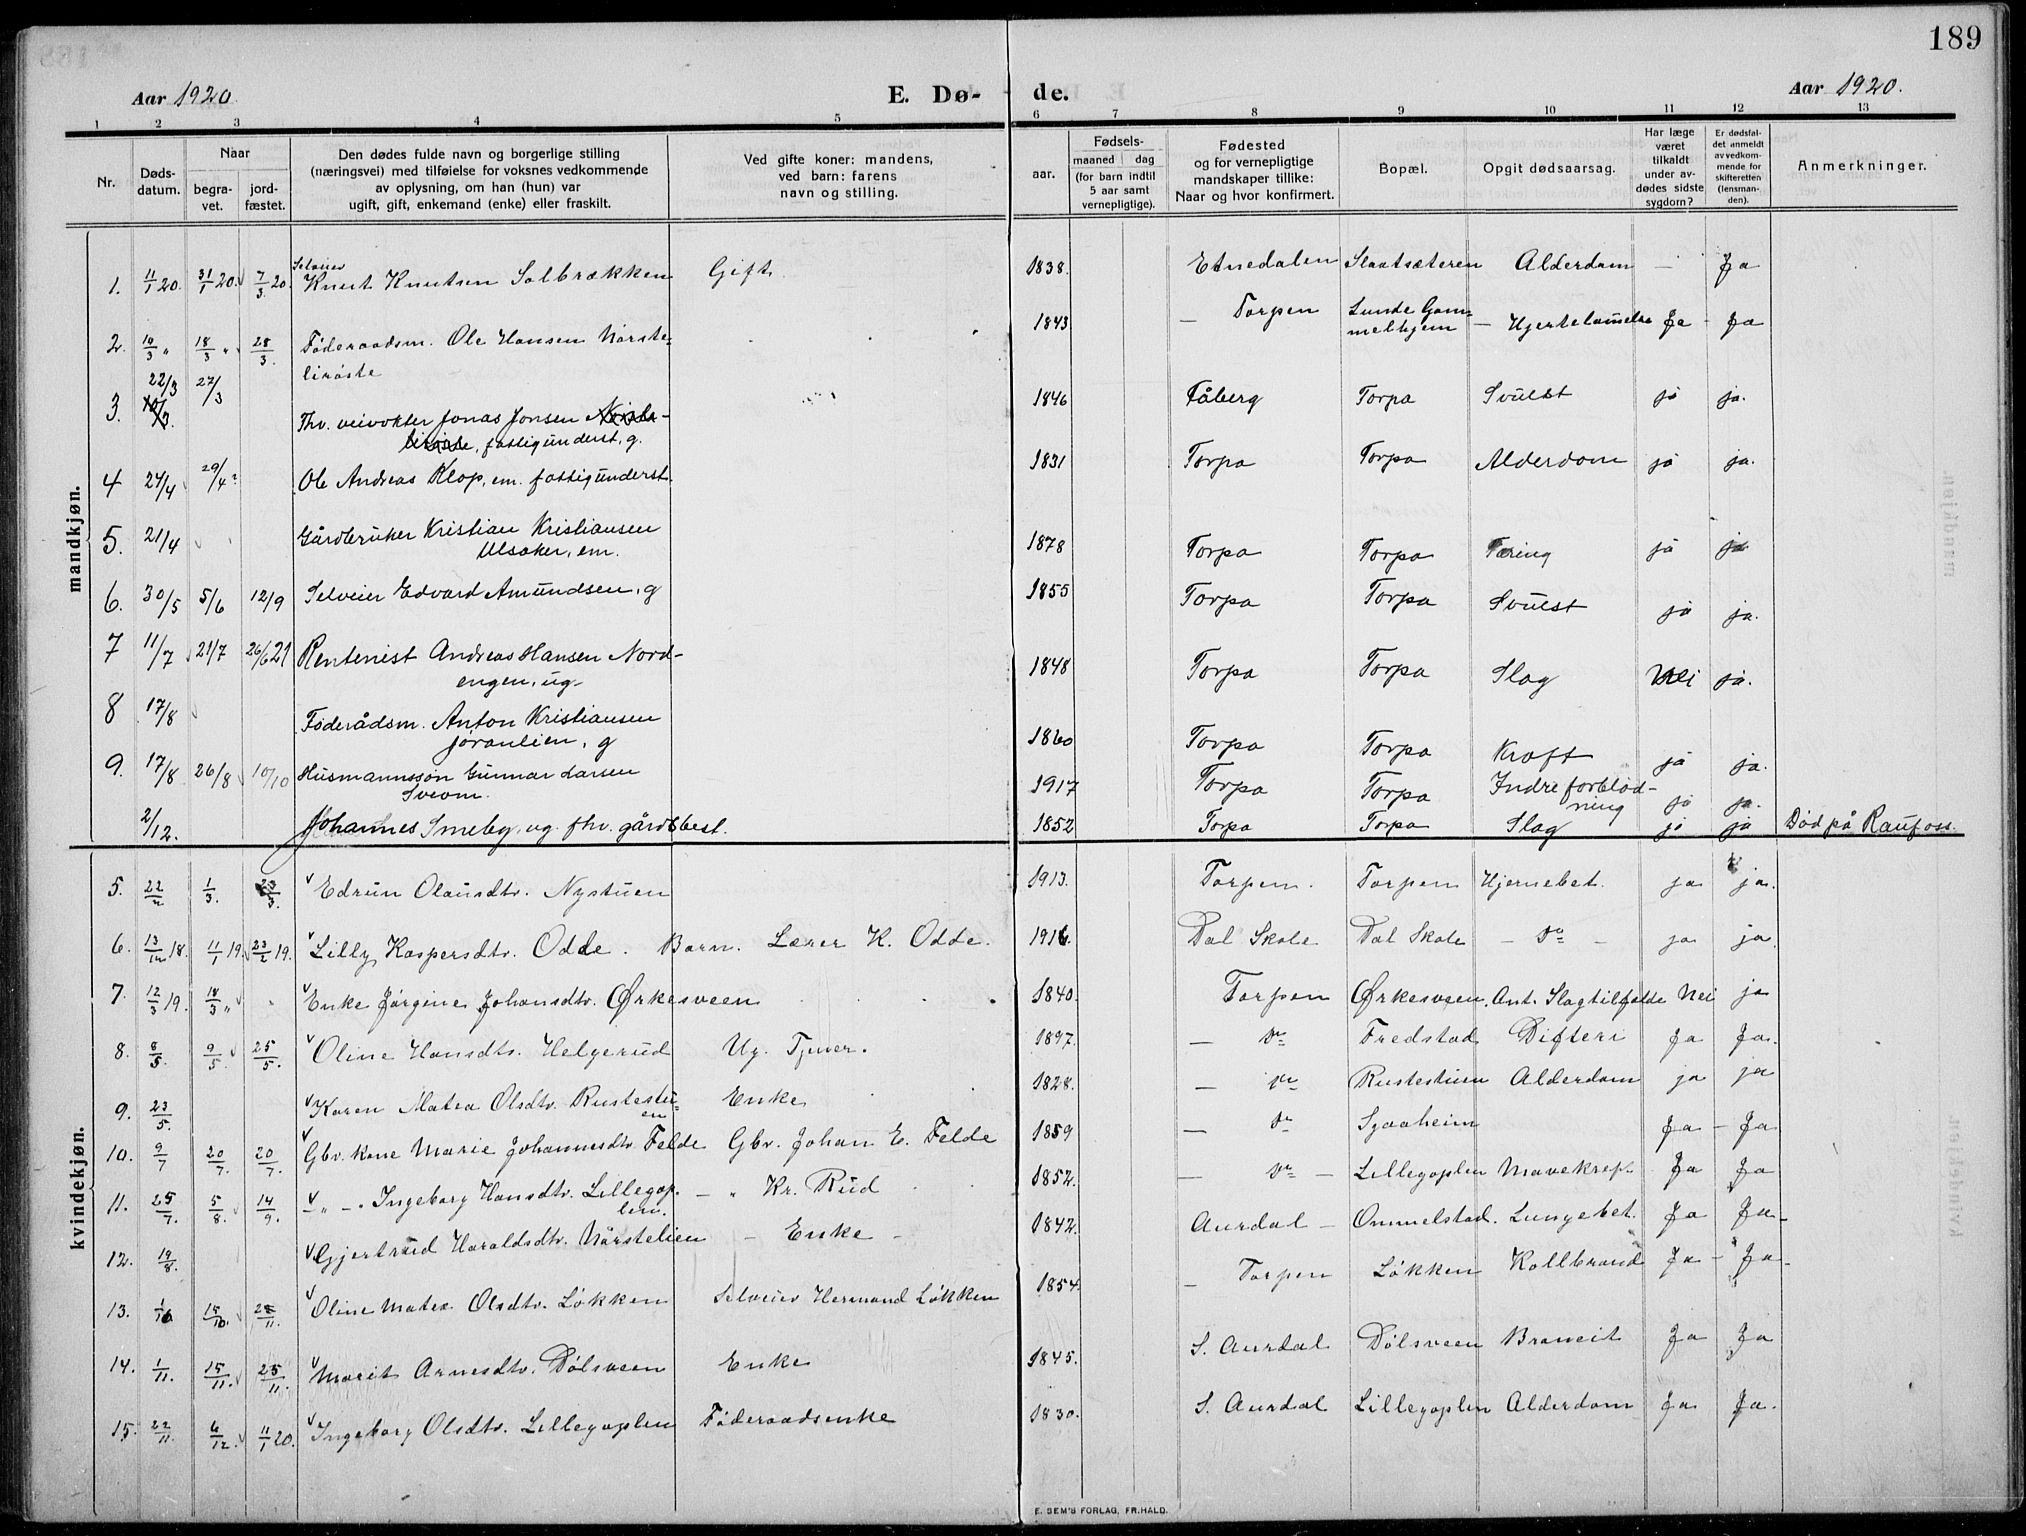 189
Aar 1920. E. Dø- de. Aar 1920.
1 2 3 4 5 6 7 8 9 10 11 12 13
Nr. Døds-datum. Naar begra-vet. jord-fæstet. Den dødes fulde navn og borgerlige stilling (næringsvei) med tilføielse for voksnes vedkommende av oplysning, om han (hun) var ugift, gift, enkemand (enke) eller fraskilt. Ved gifte koner: mandens, ved barn: farens navn og stilling. Fødsels- aar. maaned dag (for barn indtil 5 aar samt vernepligtige). Fødested og for vernepligtige mandskaper tillike: Naar og hvor konfirmert. Bopæl. Opgit dødsaarsag. Har læge været tilkaldt under av-dødes sidste sygdom? Er dødsfal-det anmeldt av vedkom-mende for skifteretten (lensman-den). Anmerkninger.
mandkjøn.
1. 11/1 20. 31/1 20. 7/3 20. Selveier Knut Knutsen Solbrækken Gift 1838. Etnedalen Slaatsæteren Alderdom — Ja
2. 10/3 „ 18/3 „ 28/3 Føderaadsm. Ole Hansen Nørste-lirøste 1843 — Torpen Lunde Gam-melhjem — Hjertelammelse Ja — Ja
3. 22/3 27/3 Fhv. veivokter Jonas Jonsen fattigunderst, g. 1846 Fåberg Torpa Svulst ja ja.
4 24/4 29/4? Ole Andreas Klop, em. fattigunderst. 1831 Torpa Torpa Alderdom ja ja.
5. 21/4 Gårdbruker Kristian Kristiansen Ulsaker, em. 1878 Torpa Torpa Tæring ja ja
6. 30/5 5/6 12/9 Selveier Edvard Amundsen, g 1855 Torpa Torpa Svulst ja ja.
7 11/7 21/7 26/6 21 Rentenist Andreas Hansen Nord-engen, ug. 1848 Torpa Torpa Slag Nei ja.
8 17/8 Føderådsm. Anton Kristiansen Jøranlien, g 1860 Torpa Torpa Kræft ja ja.
9. 17/8 26/8 10/10 Husmannssøn Gunnar Larsen Sveom. 1917 Torpa Torpa Indre forblød-ning ja ja.
2/12. Johannes Smeby, ug. fhv. gårdbest. 1852 Torpa Torpa Slag ja ja Død på Raufoss.
kvindekjøn.
5. 22/2 1/3. 23/3. Edrun Olausdtr. Nystuen 1913. Torpen. Torpen Hjernebet. ja ja.
6. 13/12 18. 11/1 19. 23/2 19. Lilly Kaspersdtr. Odde. Barn. Lærer K. Odde. 1916. Dal Skole Dal Skole — do — ja ja
7. 12/3 19. 18/3 „ Enke Jørgine Johansdtr. Ørkesveen 1840. Torpen Ørkesveen. Ant. Slagtilfælde Nei ja
8. 8/5. 9/5. 25/5. Oline Hansdtr. Helgerud Ug. Tjener. 1897. — do Fredstad Difteri Ja Ja.
9. 23/5. Karen Matea Olsdtr. Rustestu-en Enke 1828. — do Rustestuen Alderdom ja ja
10. 9/7 20/7. 20/7. Gbr. kone Marie Johannesdtr. Felde Gbr. Johan E. Felde 1859 — do Sgaaheim Ja — Ja
11. 25/7. 5/8. 14/9. — „ — . Ingeborg Hansdtr. Lillegop-len. — „ Kr. Rud 1852. — do — Lillegoplen Mavekreft. Ja Ja
12. 19/8. Gjertrud Haraldsdtr. Nørstelien — Enke — 1842. Aurdal — Ommelstad. Lungebet. Ja Ja
13. 1/10 15/10. 25/11. Oline Matea Olsdtr. Løkken Selveier Hermand Løkken 1854. — Torpen Løkken Koldbrand Ja — Ja
14. 1/11. 15/11. 25/11. Marit Arnesdtr. Dølsveen Enke 1845. S. Aurdal Dølsveen Broneit Ja Ja
15. 22/11. 6/12. 11/1 20. Ingeborg Olsdtr. Lillegoplen Føderaadsenke 1830. S. Aurdal Lillegoplen Alderdom Ja Ja.
E. SEM'S FORLAG, FR.HALD.